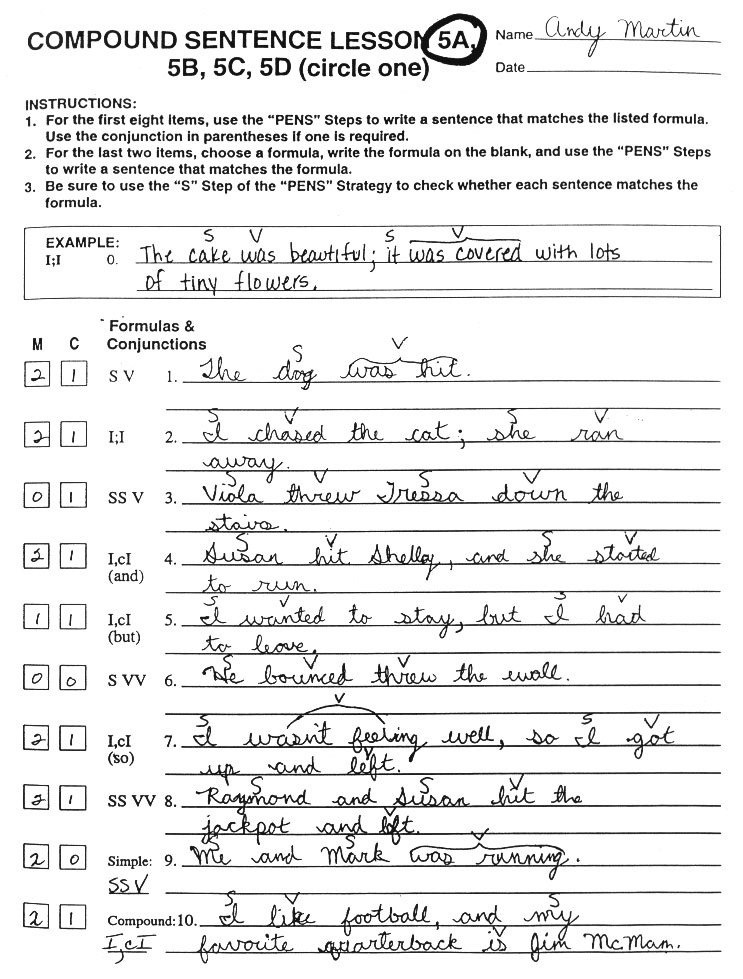 COMPOUND SENTENCE LESSON 5A, Name Andy Martin
5B, 5C, 5D (circle one) Date
INSTRUCTIONS:
1. For the first eight items, use the “PENS” Steps to write a sentence that matches the listed formula.
Use the conjunction in parentheses if one is required.
2. For the last two items, choose a formula, write the formula on the blank, and use the “PENS” Steps
to write a sentence that matches the formula.
3. Be sure to use the “S” Step of the “PENS” Strategy to check whether each sentence matches the
formula.
S V S V
EXAMPLE:
I;I 0. The cake was beautiful; it was covered with lots
of tiny flowers.
Formulas &
M C Conjunctions
S V
2 1 S V 1. The dog was hit.
S V S V
2 1 I;I 2. I chased the cat; she ran
away.
S V S V
0 1 SS V 3. Viola threw Tressa down the
stairs.
S V S V
2 1 I,cI 4. Susan hit Shelley, and she started
(and) to run.
S V S V
1 1 I,cI 5. I wanted to stay, but I had
(but) to leave.
S V V
0 0 S VV 6. He bounced threw the wall.
V
S S V
2 1 I,cI 7. I wasn't feeling well, so I got
(so) up and left.
V
S S V
2 1 SS VV 8. Raymond and Susan hit the
jackpot and left.
V
S S V
2 0 Simple: 9. Me and Mark was running.
SSV
S V S
2 1 Compound: 10. I like football, and my
I,cI favorite quarterback is Jim McMam.
V